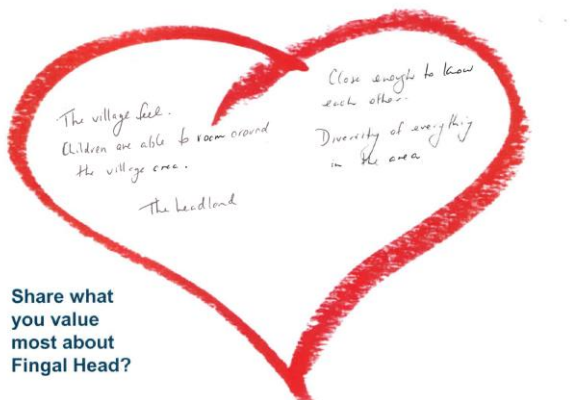 The village feel.
Children are able to roam around
the village area.
The headland
Close enough to know
each other.
Diversity of everything
in the area
Share what
you value
most about
Fingal Head?